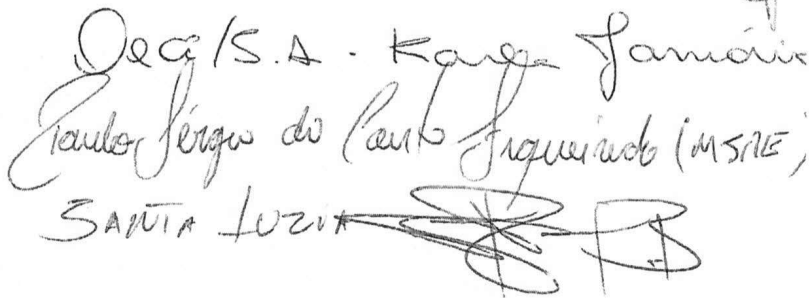 /S.A. - Karla
Paulo Sérgio do Canto Figueiredo (MSRE)
SANTA LUZIA